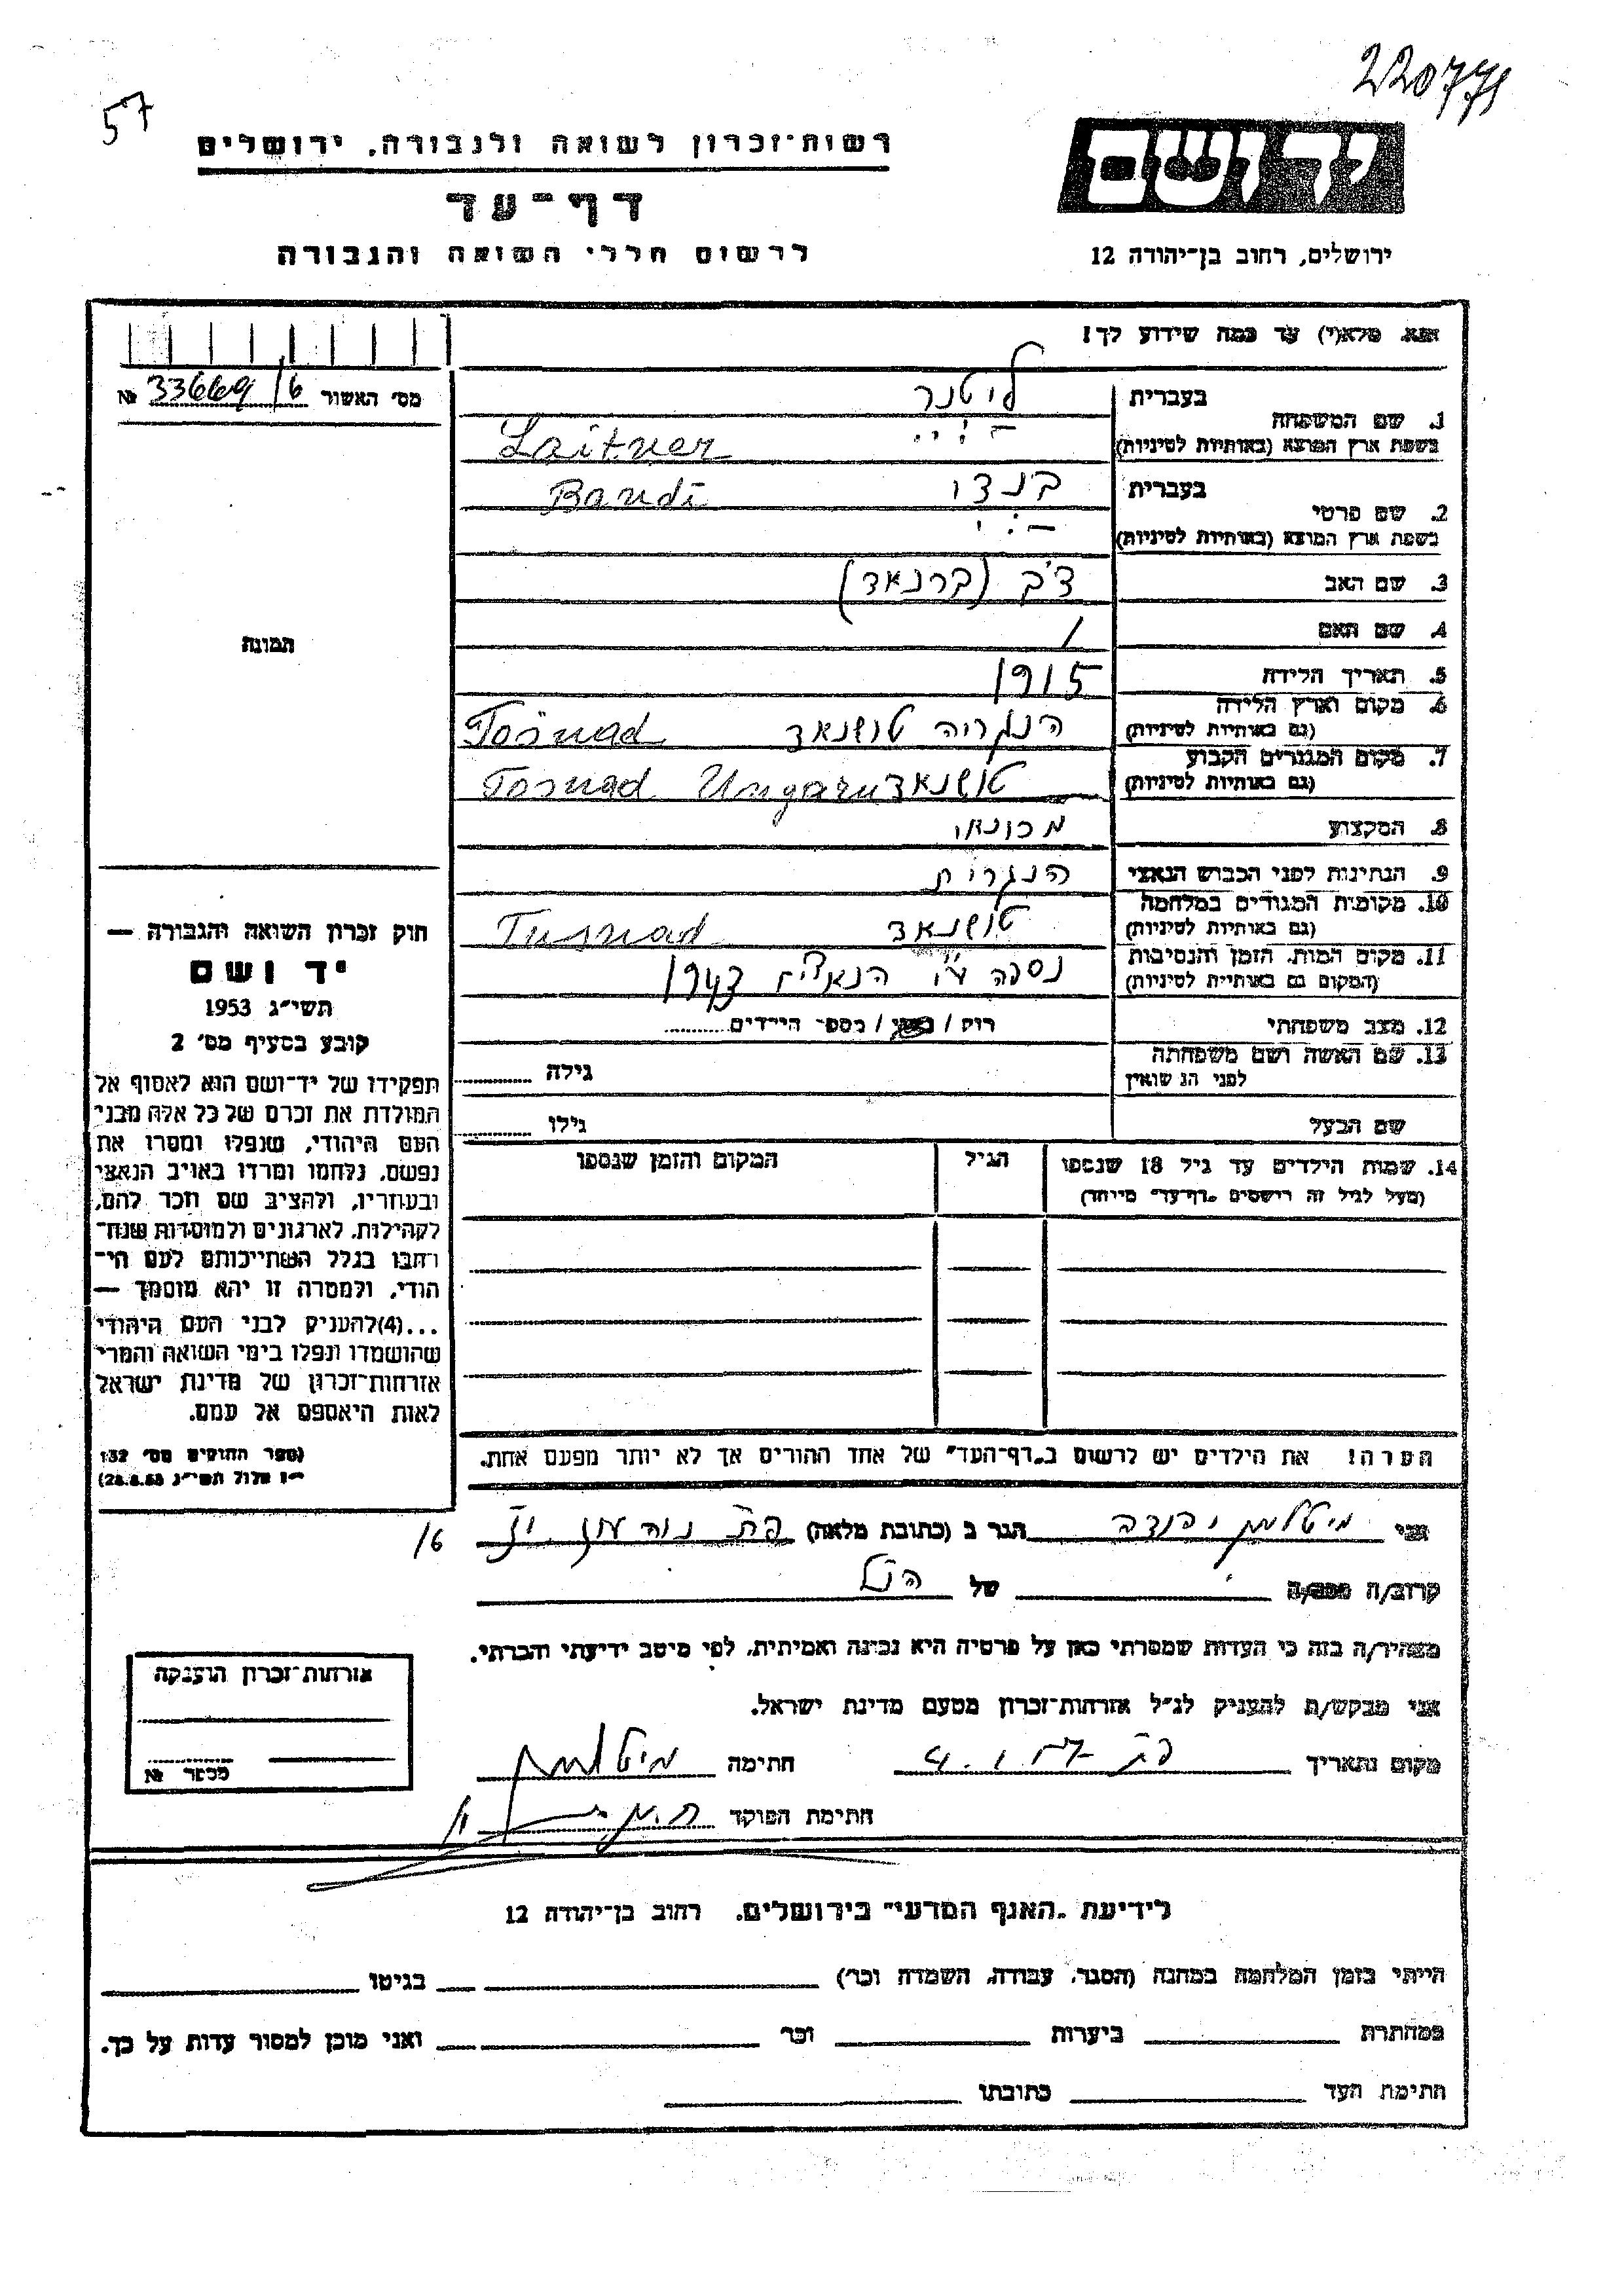 220771
57
רשות־זכרון לשואה ולגבורה, ירושלים
יד ושם
דף־עד
לרשום חללי השואה והגבורה
ירושלים, רחוב בן־יהודה 12
אנא, מלא(י) עד כמה שידוע לך!
מס׳ האשור 33669/6 №
1. שם המשפחה
בעברית ליטנר
בשפת ארץ המוצא (באותיות לטיניות) Laitner
2. שם פרטי
בעברית בנדי Bandi
בשפת ארץ המוצא (באותיות לטיניות)
3. שם האב דב (ברנאד)
4. שם האם /
5. תאריך הלידה 1915
6. מקום וארץ הלידה
(גם באותיות לטיניות) הנגריה טושנאד Tošnad
7. מקום המגורים הקבוע
(גם באותיות לטיניות) טושנאד Tosnad Ungaru
8. המקצוע מכונאי
9. הנתינות לפני הכבוש הנאצי הנגרית
10. מקומות המגורים במלחמה
(גם באותיות לטיניות) טושנאד Tusnad
11. מקום המות, הזמן והנסיבות
(המקום גם באותיות לטיניות) נספה ע״י הנאצים 1943
12. מצב משפחתי רווק / נשוי / מספר הילדים
13. שם האשה ושם משפחתה
לפני הנשואין גילה
שם הבעל גילו
14. שמות הילדים עד גיל 18 שנספו הגיל המקום והזמן שנספו
(מעל לגיל זה רושמים „דף־עד״ מיוחד)
הערה! את הילדים יש לרשום ב„דף־העד״ של אחד ההורים אך לא יותר מפעם אחת.
תמונה
חוק זכרון השואה והגבורה —
יד ושם
תשי״ג 1953
קובע בסעיף מס׳ 2
תפקידו של יד־ושם הוא לאסוף אל
המולדת את זכרם של כל אלה מבני
העם היהודי, שנפלו ומסרו את
נפשם, נלחמו ומרדו באויב הנאצי
ובעוזריו, ולהציב שם וזכר להם,
לקהילות, לארגונים ולמוסדות שנח־
רבו בגלל השתייכותם לעם הי־
הודי, ולמטרה זו יהא מוסמך —
...(4)להעניק לבני העם היהודי
שהושמדו ונפלו בימי השואה והמרי
אזרחות־זכרון של מדינת ישראל
לאות היאספם אל עמם.
(ספר החוקים מס׳ 132
י״ז אלול תשי״ג 28.8.53)
אני מיטלמן הגר ב (כתובת מלאה)
16
קרוב/ה של הנ״ל
מצהיר/ה בזה כי העדות שמסרתי כאן על פרטיה היא נכונה ואמיתית, לפי מיטב ידיעתי והכרתי.
אני מבקש/ת להעניק לנ״ל אזרחות־זכרון מטעם מדינת ישראל.
מקום ותאריך חתימה מיטלמן
חתימת הפוקד
אזרחות־זכרון הוענקה
מספר №
לידיעת „האגף המדעי״ בירושלים, רחוב בן־יהודה 12
הייתי בזמן המלחמה במחנה (הסגר, עבודה, השמדה וכו׳) בגיטו
במחתרת ביערות וכו׳ ואני מוכן למסור עדות על כך.
חתימת העד כתובתו